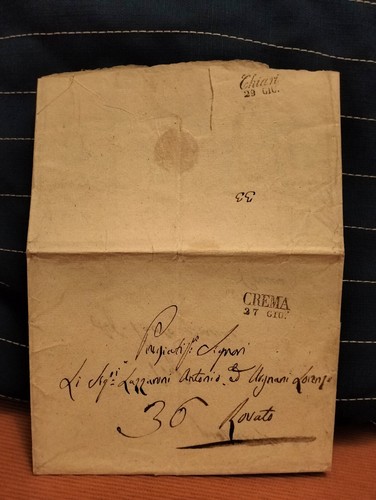 Chiari
23 GIU.
33
CREMA
27 GIU.
Pregiatis.i Signori
Li Sig.ri Lazzaroni Antonio, D Urgnani Lorenzo
36 Rovato